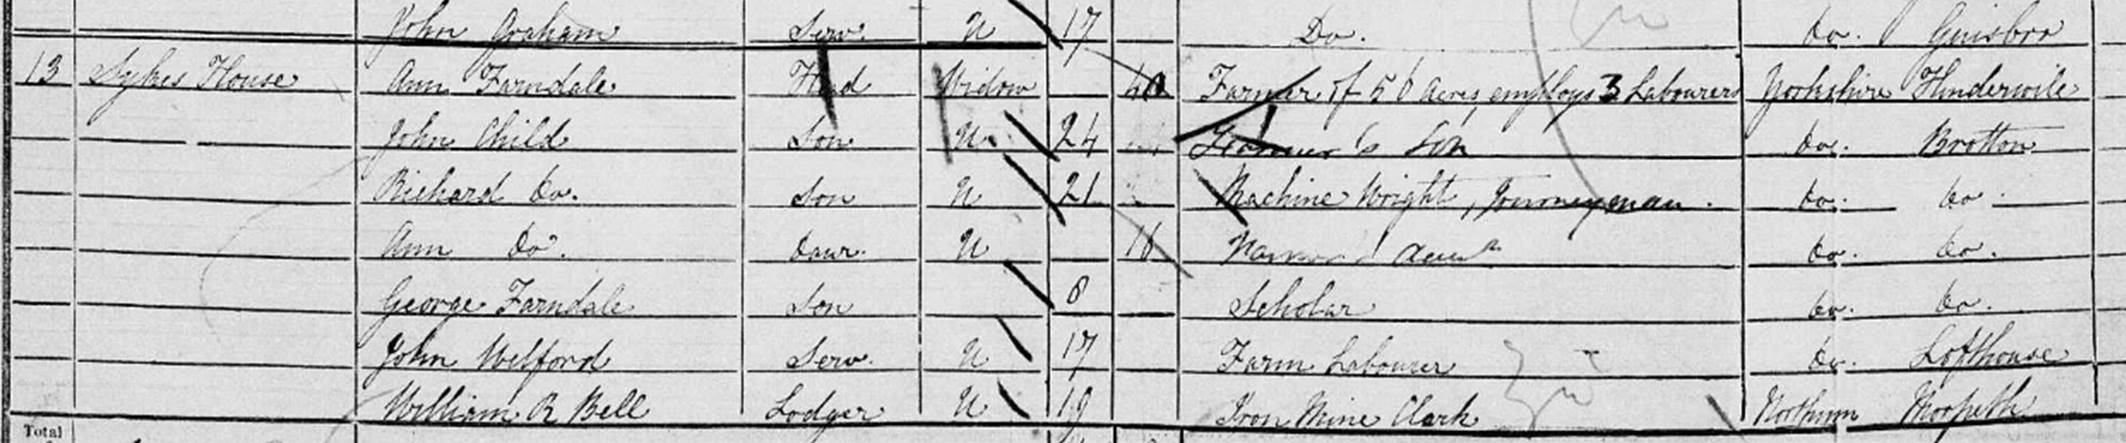 John Graham Serv. U 17 Do. do. Guisbro
13 Sykes House Ann Farndale Head Widow Farmer of 56 Acres employs 3 Labourers Yorkshire Hinderwile
John Child Son U. 24 Farmer's Son do. Brotton
Richard Do. Son U 21 Machine Wright, Journeyman. do. do.
Ann Do. Daur. U 16 do. do.
George Farndale Son 8 Scholar do. do.
John Welford Serv. U 17 Farm Labourer do. Lofthouse
William R Bell Lodger U 19 Iron Mine Clark Northum Morpeth
Total